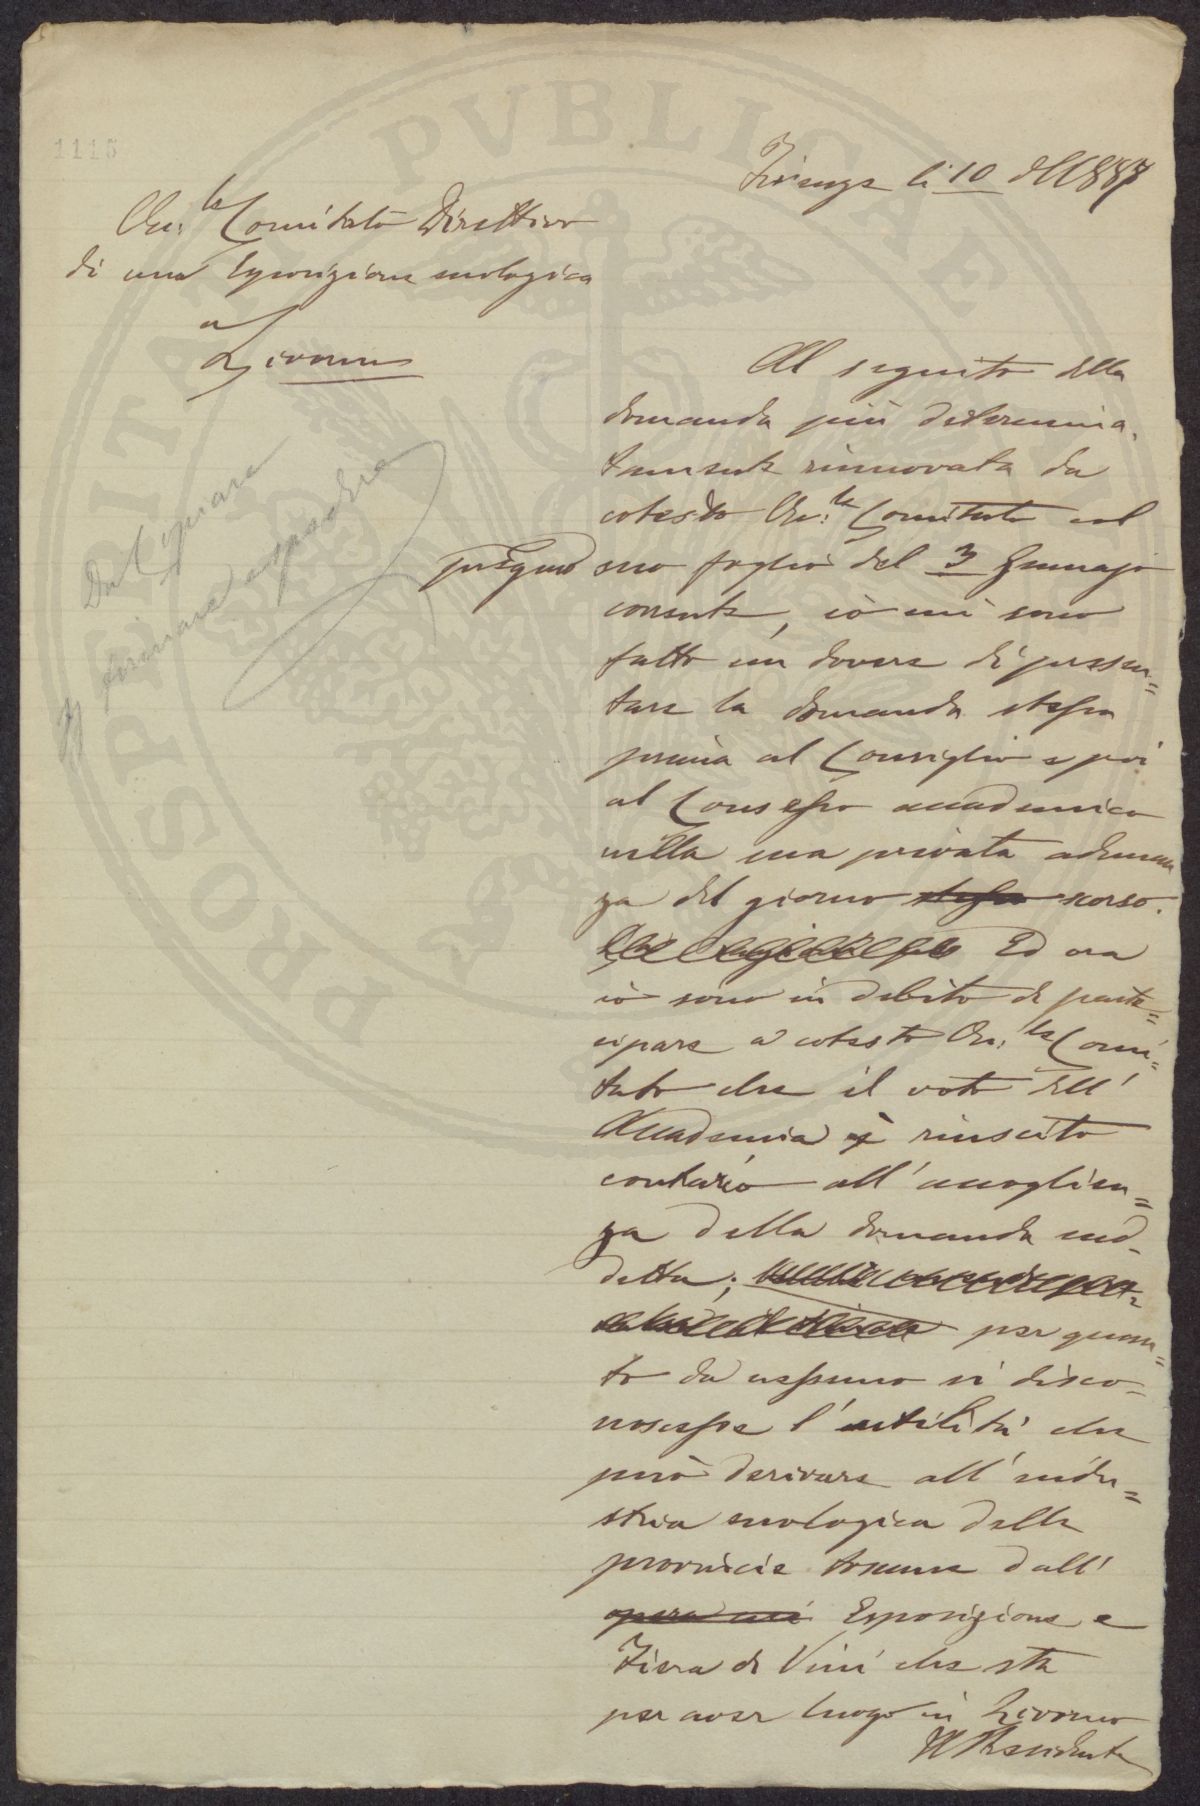 1115
Firenze li 10 1887
On.le Comitato Direttivo
di una Esposizione enologica
a
Livorno
Al seguito della
domanda più determina-
tamente rinnovata da
cotesto On.le Comitato col
pregiato suo foglio del 3 Gennajo
corrente, io mi sono
fatto un dovere di presen=
tare la domanda stessa
prima al Consiglio e poi
al Consesso accademico
nella sua privata adunan
za del giorno stesso scorso.
Ed ora
io sono in debito di parte=
cipare a cotesto On.le Comi=
tato che il voto dell'
Accademia è riuscito
contrario all'accoglien=
za della domanda sud-
detta;
per quan=
to da nessuno si disco=
noscesse l'utilità che
può derivare all'indu=
stria enologica delle
provincie toscane dall'
Esposizione e
Fiera di Vini che sta
per aver luogo in Livorno
Il Presidente
Da Copiare
PROSPERITATI PVBLICAE